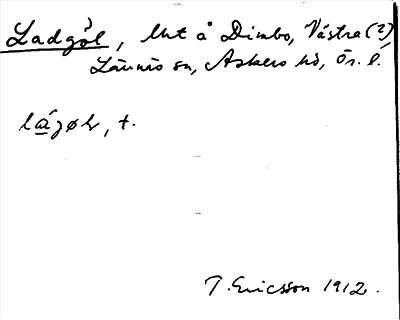 Ladgöl, tht å Dimbo, Västra (?)
Lännäs sn, Askers hd, Ör. l.
lágøl, t.
T. Ericsson 1912.